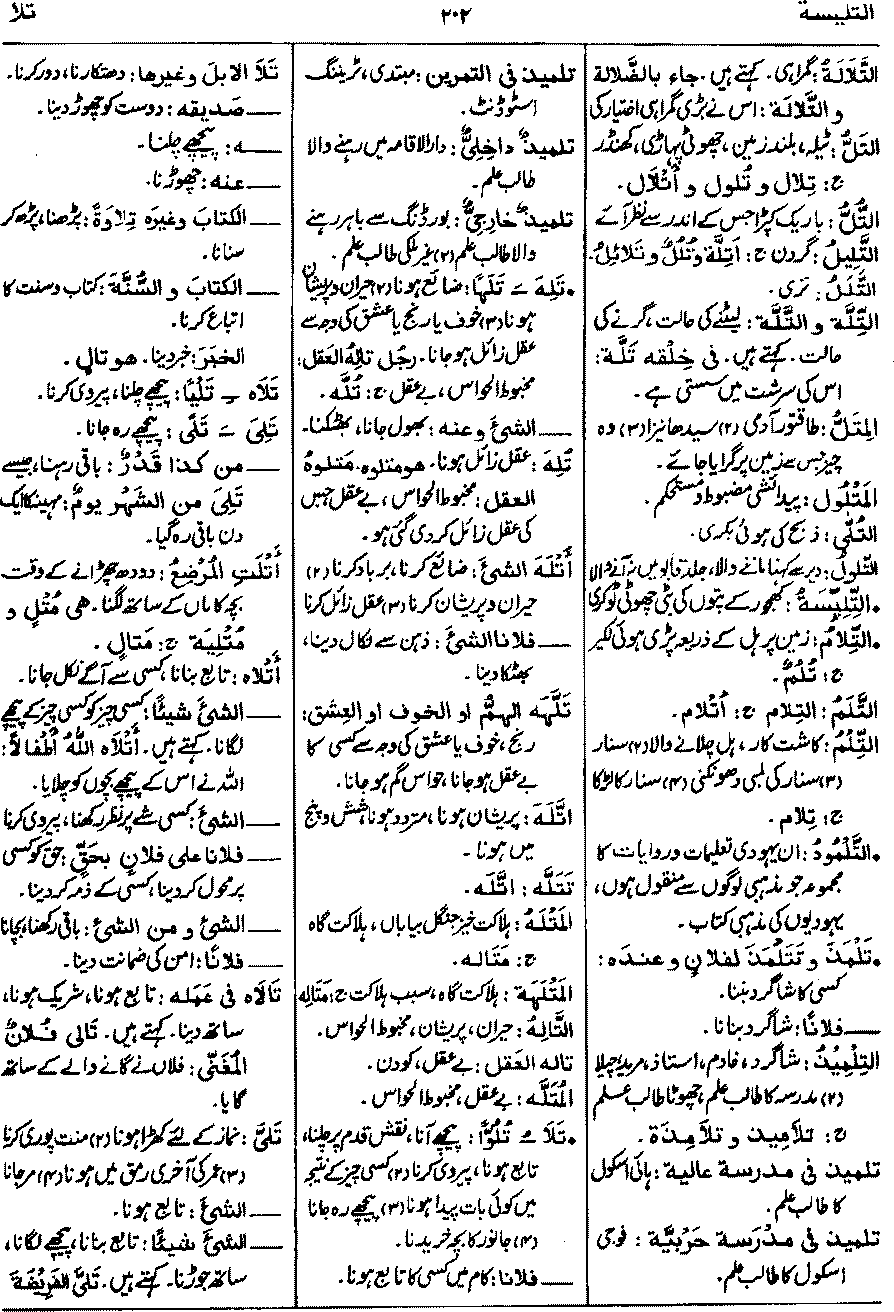 التلبسة ۲۰۲ تلا
التَّلَالَةُ: گمراہی۔ کہتے ہیں۔ جاء بالضَّلالة
و التَّلالَة: اس نے بڑی گمراہی اختیار کی
التَلُّ: ٹیلہ، بلند زمین، چھوٹی پہاڑی، کھنڈر
ج: تِلال و تُلول و أَتْلال۔
التُّلُّ: باریک کپڑا جس کے اندر سے نظر آئے
التَّلِيلُ: گردن ج: أَتِلَّة وتُلُلٌ و تَلائلُ۔
التَّلَلُ: تری۔
التِّلَّة و التَّلَّة: لیٹنے کی حالت، گرنے کی
حالت۔ کہتے ہیں۔ فی خِلْقه تَلَّة:
اس کی سرشت میں سستی ہے۔
المِتَلُّ: طاقتور آدمی (۲) سیدھا نیزا (۳) وہ
چیز جس سے زمین پر گرایا جائے۔
المَتْلُول: پیدائشی مضبوط و مستحکم۔
التُلّٰی: ذبح کی ہوئی بکری۔
التَّلولُ: دیر سے کہنا ماننے والا، جلد قابو میں نہ آنے والا
•التِلِّيسَةُ: کھجور کے پتوں کی بنی چھوٹی ٹوکری
•التِّلَامُ: زمین پر ہل کے ذریعہ پڑی ہوئی لکیر
ج: تُلُمٌ۔
التَّلَمُ: التِلام ج: أَتْلام۔
التِّلْمُ: کاشت کار، ہل چلانے والا (۲) سنار
(۳) سنار کی لمبی دھونکنی (۴) سنار کا لڑکا
ج: تِلام۔
•التَّلْمُودُ: ان یہودی تعلیمات و روایات کا
مجموعہ جو مذہبی لوگوں سے منقول ہوں،
یہودیوں کی مذہبی کتاب۔
•تَلْمَذَ و تَتَلْمَذَ لفلانٍ و عنده:
کسی کا شاگرد بننا۔
ــــ فلانًا: شاگرد بنانا۔
التِلْمِيذُ: شاگرد، خادم، استاذ، مرید یا چیلا
(۲) مدرسہ کا طالب علم، چھوٹا طالب علم
ج: تلاميذ و تلامِذَة۔
تلميذ فی مدرسة عالية: ہائی اسکول
کا طالب علم۔
تلميذ فی مَدْرَسة حَرْبيّة: فوجی
اسکول کا طالب علم۔
تلميذ فی التمرين: مبتدی، ٹریننگ
اسٹوڈنٹ۔
تلميذٌ داخليٌّ: دارالاقامہ میں رہنے والا
طالب علم۔
تلميذٌ خارجيٌّ: بورڈنگ سے باہر رہنے
والا طالب علم (۲) غیر ملکی طالب علم۔
•تَلِهَ ــَـ تَلَهًا: ضائع ہونا (۲) حیران و پریشان
ہونا (۳) خوف یا رنج یا عشق کی وجہ سے
عقل زائل ہو جانا۔ رجُل تالِهُ العَقل:
مخبوط الحواس، بے عقل ج: تُلَّه۔
ــــ الشئَ وعنه: بھول جانا، بھٹکنا۔
تُلِهَ: عقل زائل ہونا۔ هو متلوه۔ مَتلوهُ
العقل: مخبوط الحواس، بے عقل جس
کی عقل زائل کر دی گئی ہو۔
أَتْلَهَ الشئَ: ضائع کرنا، برباد کرنا (۲)
حیران و پریشان کرنا (۳) عقل زائل کرنا
ــــ فلانا الشئَ: ذہن سے نکال دینا،
بھٹکا دینا۔
تَلَّهَه الهمُّ او الخوف او العِشق:
رنج، خوف یا عشق کی وجہ سے کسی کا
بے عقل ہو جانا، حواس گم ہو جانا۔
اتَّلَهَ: پریشان ہونا، متردد ہونا، شش و پنج
میں ہونا۔
تَتَلَّه: اتَّلَه۔
المَتْلَهُ: ہلاکت خیز جنگل بیاباں، ہلاکت گاہ
ج: مَتَاله۔
المَتْلَهَة: ہلاکت گاہ، سبب ہلاکت ج: مَتَاله
التَّالِهُ: حیران، پریشان، مخبوط الحواس۔
تالِه العَقل: بے عقل، کودن۔
المُتَلَّه: بے عقل، مخبوط الحواس۔
•تَلَا ــُـ تُلُوًّا: پیچھے آنا، نقش قدم پر چلنا،
تابع ہونا، پیروی کرنا (۲) کسی چیز کے نتیجہ
میں کوئی بات پیدا ہونا (۳) پیچھے رہ جانا
(۴) جانور کا بچہ خریدنا۔
ــــ فلانا: کام میں کسی کا تابع ہونا۔
تَلَا الابلَ وغيرها: دھتکارنا، دور کرنا۔
ــــ صديقَه: دوست کو چھوڑ دینا۔
ــــ ه: پیچھے چلنا۔
ــــ عنه: چھوڑنا۔
ــــ الكتابَ وغيره تِلَاوَةً: پڑھنا، پڑھ کر
سنانا۔
ــــ الكتابَ و السُّنَّةَ: کتاب و سنت کا
اتباع کرنا۔
الخبَرَ: خبر دینا۔ هو تالٍ۔
تَلَاه ــِـ تَلْيًا: پیچھے چلنا، پیروی کرنا۔
تَلِيَ ــَـ تَلًى: پیچھے رہ جانا۔
ــــ من كذا قَدْرٌ: باقی رہنا، جیسے
تَلِيَ من الشَهْرِ يومٌ: مہینہ کا ایک
دن باقی رہ گیا۔
أَتْلَتِ المُرْضِعُ: دودھ چھڑانے کے وقت
بچہ کا ماں کے ساتھ لگنا۔ هی مُتْلٍ و
مُتْلِيَة ج: مَتالٍ۔
أَتْلاه: تابع بنانا، کسی سے آگے نکل جانا۔
ــــ الشئَ شيئًا: کسی چیز کو کسی چیز کے پیچھے
لگانا۔ کہتے ہیں۔ أَتْلَاه اللهُ أَطْفالًا:
اللہ نے اس کے پیچھے بچوں کو چلایا۔
ــــ الشئَ: کسی شے پر نظر رکھنا، پیروی کرنا
ــــ فلانا على فلانٍ بحَقٍّ: حق کو کسی
پر محول کر دینا، کسی کے ذمہ کر دینا۔
ــــ الشئَ و من الشئِ: باقی رکھنا، بچانا
ــــ فلانًا: امن کی ضمانت دینا۔
تَالَاه فی عَمَله: تابع ہونا، شریک ہونا،
ساتھ دینا۔ کہتے ہیں۔ تَالى فُلانٌ
المُغَنّى: فلاں نے گانے والے کے ساتھ
گایا۔
تَلَّى: نماز کے لئے کھڑا ہونا (۲) منت پوری کرنا
(۳) عمر کی آخری رمق میں ہونا (۴) مر جانا
ــــ الشئَ: تابع ہونا۔
ــــ الشئَ شيئًا: تابع بنانا، پیچھے لگانا،
ساتھ جوڑنا۔ کہتے ہیں۔ تَلَّى الفَرِيضَةَ